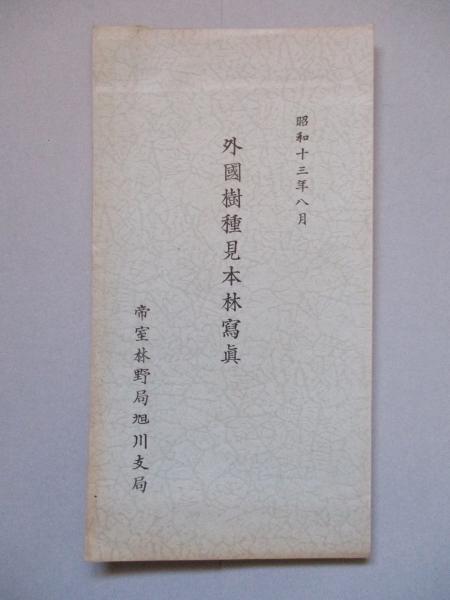 昭和十三年八月
外國樹種見本林寫眞
帝室林野局旭川支局